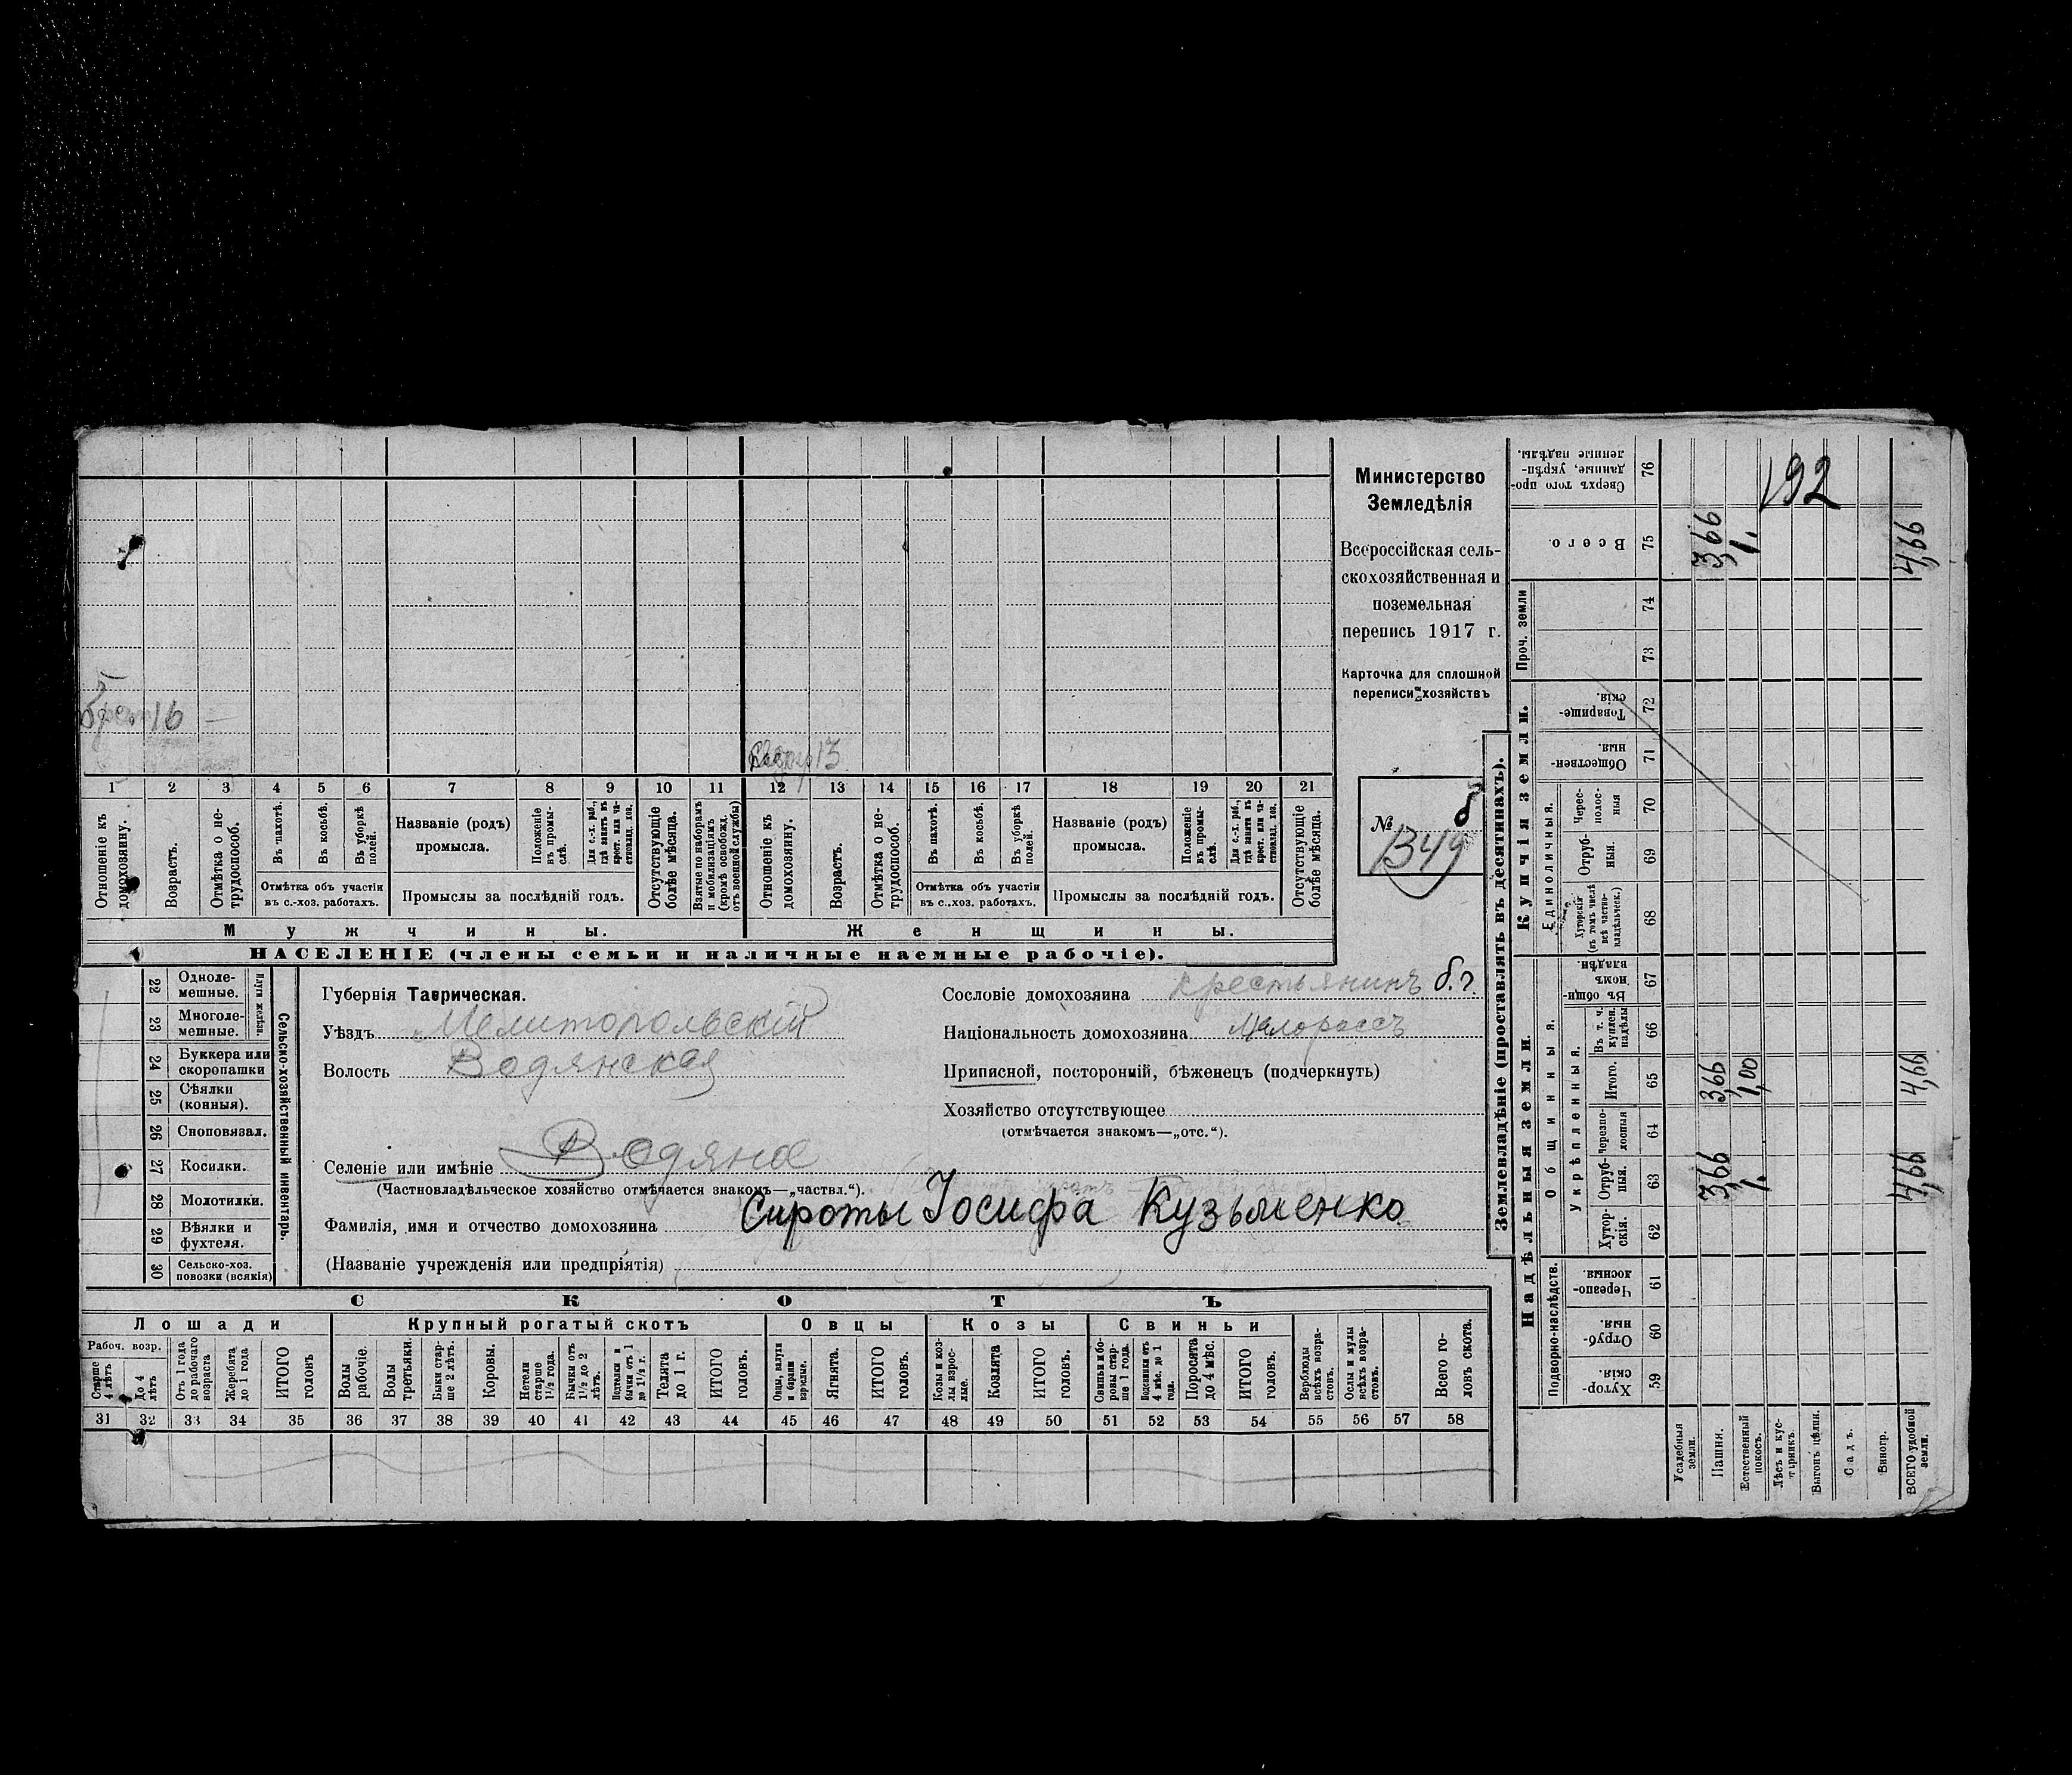 Министерство
Земледѣлія
Всероссійская сель-
скохозяйственная и
поземельная
перепись 1917 г.
Карточка для сплошной
переписи хозяйствъ
№ б
1349
16
13
1 2 3 4 5 6 7 8 9 10 11 12 13 14 15 16 17 18 19 20 21
Отношеніе къ домохозяину.
Возрастъ.
Отмѣтка о не-трудоспособ.
Въ пахотѣ.
Въ косьбѣ.
Въ уборкѣ полей.
Отмѣтка объ участіи
въ с.-хоз. работахъ.
Названіе (родъ)
промысла.
Положеніе въ промы-слѣ.
Для с.-х. раб., гдѣ занятъ въ крест. или ча-стновлад. хоз.
Промыслы за послѣдній годъ.
Отсутствующіе болѣе мѣсяца.
Взятые по наборамъ и мобилизаціямъ (кромѣ освобожд. отъ военной службы)
Отношеніе къ домохозяину.
Возрастъ.
Отмѣтка о не-трудоспособ.
Въ пахотѣ.
Въ косьбѣ.
Въ уборкѣ полей.
Отмѣтка объ участіи
въ с.-хоз. работахъ.
Названіе (родъ)
промысла.
Положеніе въ промы-слѣ.
Для с.-х. раб., гдѣ занятъ въ крест. или ча-стновлад. хоз.
Промыслы за послѣдній годъ.
Отсутствующіе болѣе мѣсяца.
Мужчины. Женщины.
НАСЕЛЕНІЕ (члены семьи и наличные наемные рабочіе).
22 Одноле-мешные.
23 Многоле-мешные.
Плуги желѣзн.
24 Буккера или скоропашки
25 Сѣялки (конныя).
26 Сноповязал.
27 Косилки.
28 Молотилки.
29 Вѣялки и фухтеля.
30 Сельско-хоз. повозки (всякія)
Сельско-хозяйственный инвентарь.
Губернія Таврическая.
Уѣздъ Мелитопольскій
Волость Водянская
Селеніе или имѣніе Водяное
(Частновладѣльческое хозяйство отмѣчается знакомъ—„частвл.“).
Фамилія, имя и отчество домохозяина Сироты Іосифа Кузьменко
(Названіе учрежденія или предпріятія)
Сословіе домохозяина крестьянинъ б.г.
Національность домохозяина Малороссъ
Приписной, посторонній, бѣженецъ (подчеркнуть)
Хозяйство отсутствующее
(отмѣчается знакомъ—„отс.“).
СКОТЪ
Лошади Крупный рогатый скотъ Овцы Козы Свиньи
Рабоч. возр.
Старше 4 лѣтъ
До 4 лѣтъ
Отъ 1 года до рабочаго возраста
Жеребята до 1 года
ИТОГО головъ
Волы рабочіе.
Волы третьяки.
Быки стар-ше 2 лѣтъ.
Коровы.
Нетели старше 1½ года.
Бычки отъ 1½ до 2 лѣтъ.
Подтелки и бычки отъ 1 до 1½ г.
Телята до 1 г.
ИТОГО головъ.
Овцы, валухи и бараны взрослые.
Ягнята.
ИТОГО головъ.
Козы и коз-лы взрос-лые.
Козлята
ИТОГО головъ.
Свиньи и бо-ровы стар-ше 1 года.
Подсвинки отъ 4 мѣс. до 1 года.
Поросята до 4 мѣс.
ИТОГО головъ.
Верблюды всѣхъ возра-стовъ.
Ослы и мулы всѣхъ возра-стовъ.
Всего го-ловъ скота.
31 32 33 34 35 36 37 38 39 40 41 42 43 44 45 46 47 48 49 50 51 52 53 54 55 56 57 58
Землевладѣніе (проставлять въ десятинахъ).
Надѣльныя земли.
Купчія земли.
Проч. земли
Подворно-наслѣдств.
Общинныя.
Укрѣпленныя.
Единоличныя.
Хутор-скія. 59
Отруб-ныя. 60
Черезпо-лосныя. 61
Хутор-скія. 62
Отруб-ныя. 63
Черезпо-лосныя 64
Итого. 65
Въ т. ч. куплен. надѣлы 66
Въ общи-номъ владѣн. 67
Хуторскія (въ томъ числѣ всѣ частно-владѣльческ.) 68
Отруб-ныя. 69
Черес-полос-ныя 70
Обществен-ныя. 71
Товарище-скія. 72
73
74
Всего. 75
Сверхъ того про-данные, укрѣп-ленные надѣлы. 76
Усадебныя земли.
Пашня. 3,66 3,66 3,66
Естественный покосъ. 1. 1,00 1.
Лѣсъ и кус-тарникъ.
Выгонъ цѣлин.
Садъ.
Виногр.
ВСЕГО удобной земли. 4,66 4,66 4,66
192